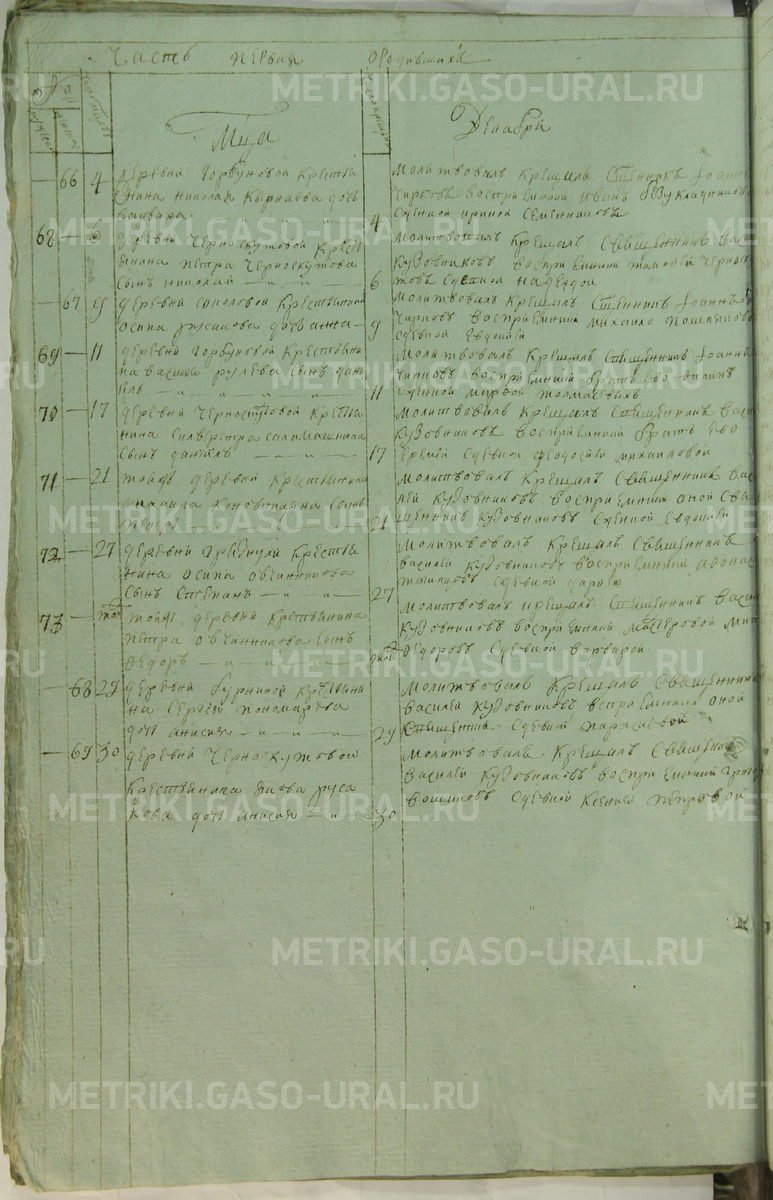 Часть первая о родившихъ
Мца Декабря
66 4 деревни Горбуновой крестья
нина Николая Кырнаева дочь
Варвара
4 Молитвовалъ крещалъ сщенникъ Иоаннъ
Чирковъ восприемники Иванъ
съ девкой Ириной Семенниковъ
68 6 деревни Черноскутовой кресть
янина Петра Черноскутова
сынъ Николай
6 Молитвовалъ крещалъ священникъ Васи
Кудовниковъ восприемники Тимофей Черноску
товъ съ девкой Надеждой
67 9 деревни Соколовой крестьянина
Осипа Русакова дочь Анна
9 Молитвовалъ крещалъ сщенникъ Иоаннъ
Чирковъ восприемники Михайло
съ девкой Евдокией
69 11 деревни Горбуновой крестьяни
на Василья Рулева сынъ Дан
илъ
11 Молитвовалъ крещалъ священникъ Иоаннъ
Чирковъ восприемники братъ ево Филипъ
съ девкой Марфой Толмачевыхъ
70 17 деревни крестья
нина Силверстра Саламашкина
сынъ Данилъ
17 Молитвовалъ крещалъ священникъ Васи
Кудовниковъ восприемники братъ ево
съ девкой Феодосией Михаиловой
71 21 тойже деревни крестьянина
Михаила сынъ
21 Молитвовалъ крещалъ священникъ Васи
лей Кудовниковъ восприемники оной свя
щенникъ Кудовниковъ съ женой Евдокией
72 27 деревни Грязнухи крестья
нина Осипа Овчинникова
сынъ Степанъ
27 Молитвовалъ крещалъ священникъ
Василей Кудовниковъ восприемники
съ девкой Дарьей
73 той тойже деревни крестьянина
Петра Овчинникова сынъ
Федоръ
той Молитвовалъ крещалъ священникъ Васи
Кудовниковъ восприемники мастеровой
Федоровъ съ девкой Варварой
68 29 деревни Бурниной крестьяни
на Сергея Пономарева
дочь Анисия
29 Молитвовалъ крещалъ священникъ
Василей Кудовниковъ восприемники оной
священникъ съ девкой Парасковой
69 30 деревни Черноскутовой
крестьянина Якова Руса
кова дочь Анисия
30 Молитвовалъ крещалъ священ
Василей Кудовниковъ восприемники Григор
съ девкой Ксенией Петровой
METRIKI.GASO-URAL.RU